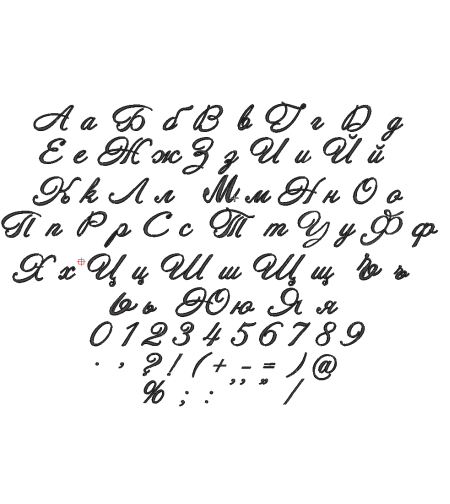 А а Б б В в Г г Д д
Е е Ж ж З з И и Й й
К к Л л М м Н н О о
П п Р р С с Т т У у Ф ф
Х х Ц ц Ш ш Щ щ Ъ ъ
Ь ь Ю ю Я я
0 1 2 3 4 5 6 7 8 9
. , ? ! ( + - = ) @
% ; : ,, ” /